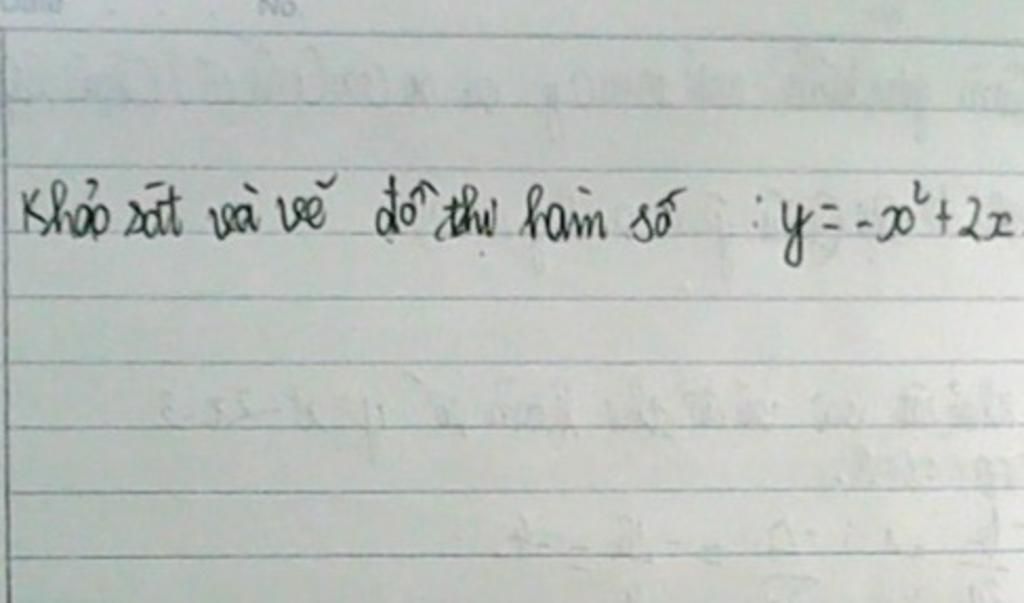 No.
Khảo sát và vẽ đồ thị hàm số : y = -x² + 2x